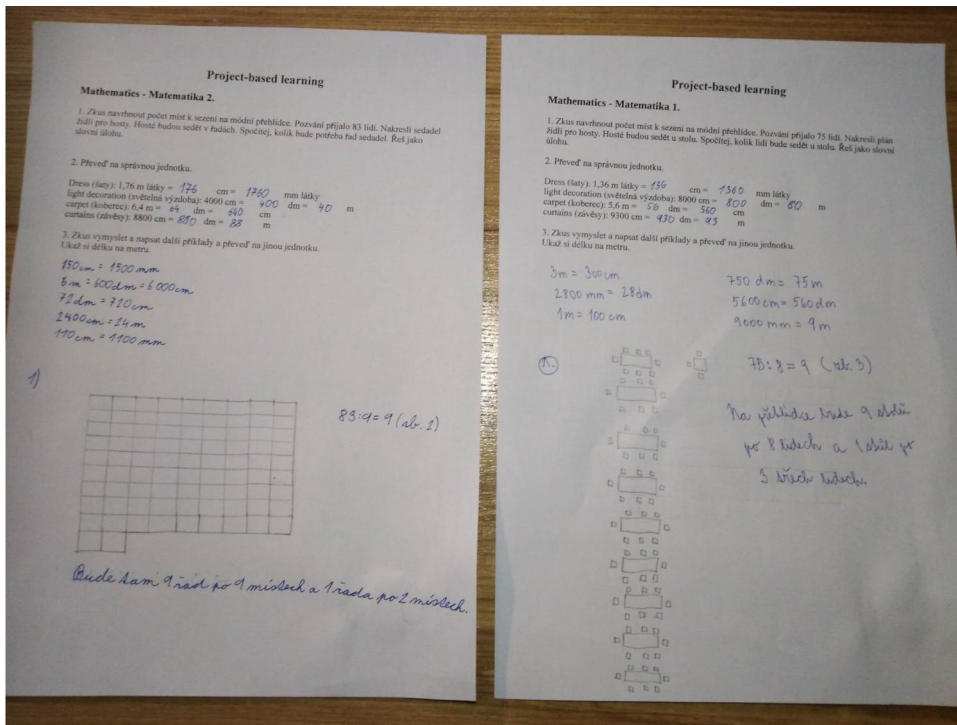 Project-based learning
Mathematics - Matematika 2.
1. Zkus navrhnout počet míst k sezení na módní přehlídce. Pozvání přijalo 83 lidí. Nakresli sedadel
židlí pro hosty. Hosté budou sedět v řadách. Spočítej, kolik bude potřeba řad sedadel. Řeš jako
slovní úlohu.
2. Převeď na správnou jednotku.
Dress (šaty): 1,76 m látky = 176 cm = 1760 mm látky
light decoration (světelná výzdoba): 4000 cm = 400 dm = 40 m
carpet (koberec): 6,4 m = 64 dm = 640 cm
curtains (závěsy): 8800 cm = 880 dm = 88 m
3. Zkus vymyslet a napsat další příklady a převeď na jinou jednotku.
Ukaž si délku na metru.
150cm = 1500mm
6m = 600dm = 6000cm
72dm = 720cm
2400cm = 24m
110cm = 1100mm
1)
83:9=9 (zb. 2)
Bude tam 9 řad po 9 místech a 1 řada po 2 místech.
Project-based learning
Mathematics - Matematika 1.
1. Zkus navrhnout počet míst k sezení na módní přehlídce. Pozvání přijalo 75 lidí. Nakresli plán
židlí pro hosty. Hosté budou sedět u stolu. Spočítej, kolik lidí bude sedět u stolu. Řeš jako slovní
úlohu.
2. Převeď na správnou jednotku.
Dress (šaty): 1,36 m látky = 136 cm = 1360 mm látky
light decoration (světelná výzdoba): 8000 cm = 800 dm = 80 m
carpet (koberec): 5,6 m = 56 dm = 560 cm
curtains (závěsy): 9300 cm = 930 dm = 93 m
3. Zkus vymyslet a napsat další příklady a převeď na jinou jednotku.
Ukaž si délku na metru.
3m = 300cm
2800 mm = 28dm
1m = 100 cm
750 dm = 75m
5600cm = 560dm
9000 mm = 9m
1.
75:8 = 9 (zb. 3)
Na přehlídce bude 9 stolů
po 8 lidech a 1 stůl po
3 třech lidech.